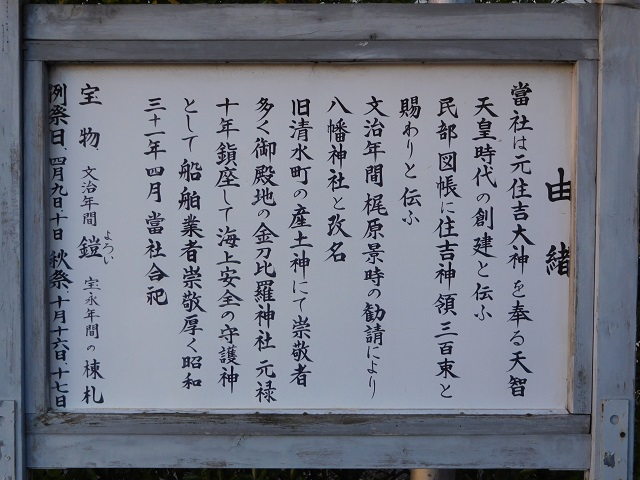 由緒
當社は元住吉大神を奉る天智
天皇時代の創建と伝ふ
民部図帳に住吉神領三百束と
賜わりと伝ふ
文治年間梶原景時の勧請により
八幡神社と改名
旧清水町の産土神にて崇敬者
多く御殿地の金刀比羅神社元禄
十年鎮座して海上安全の守護神
として船舶業者崇敬厚く昭和
三十一年四月當社合祀
宝物 文治年間 鎧 宝永年間の棟札
よろい
例祭日、四月九日十日 秋祭 十月十六日、十七日